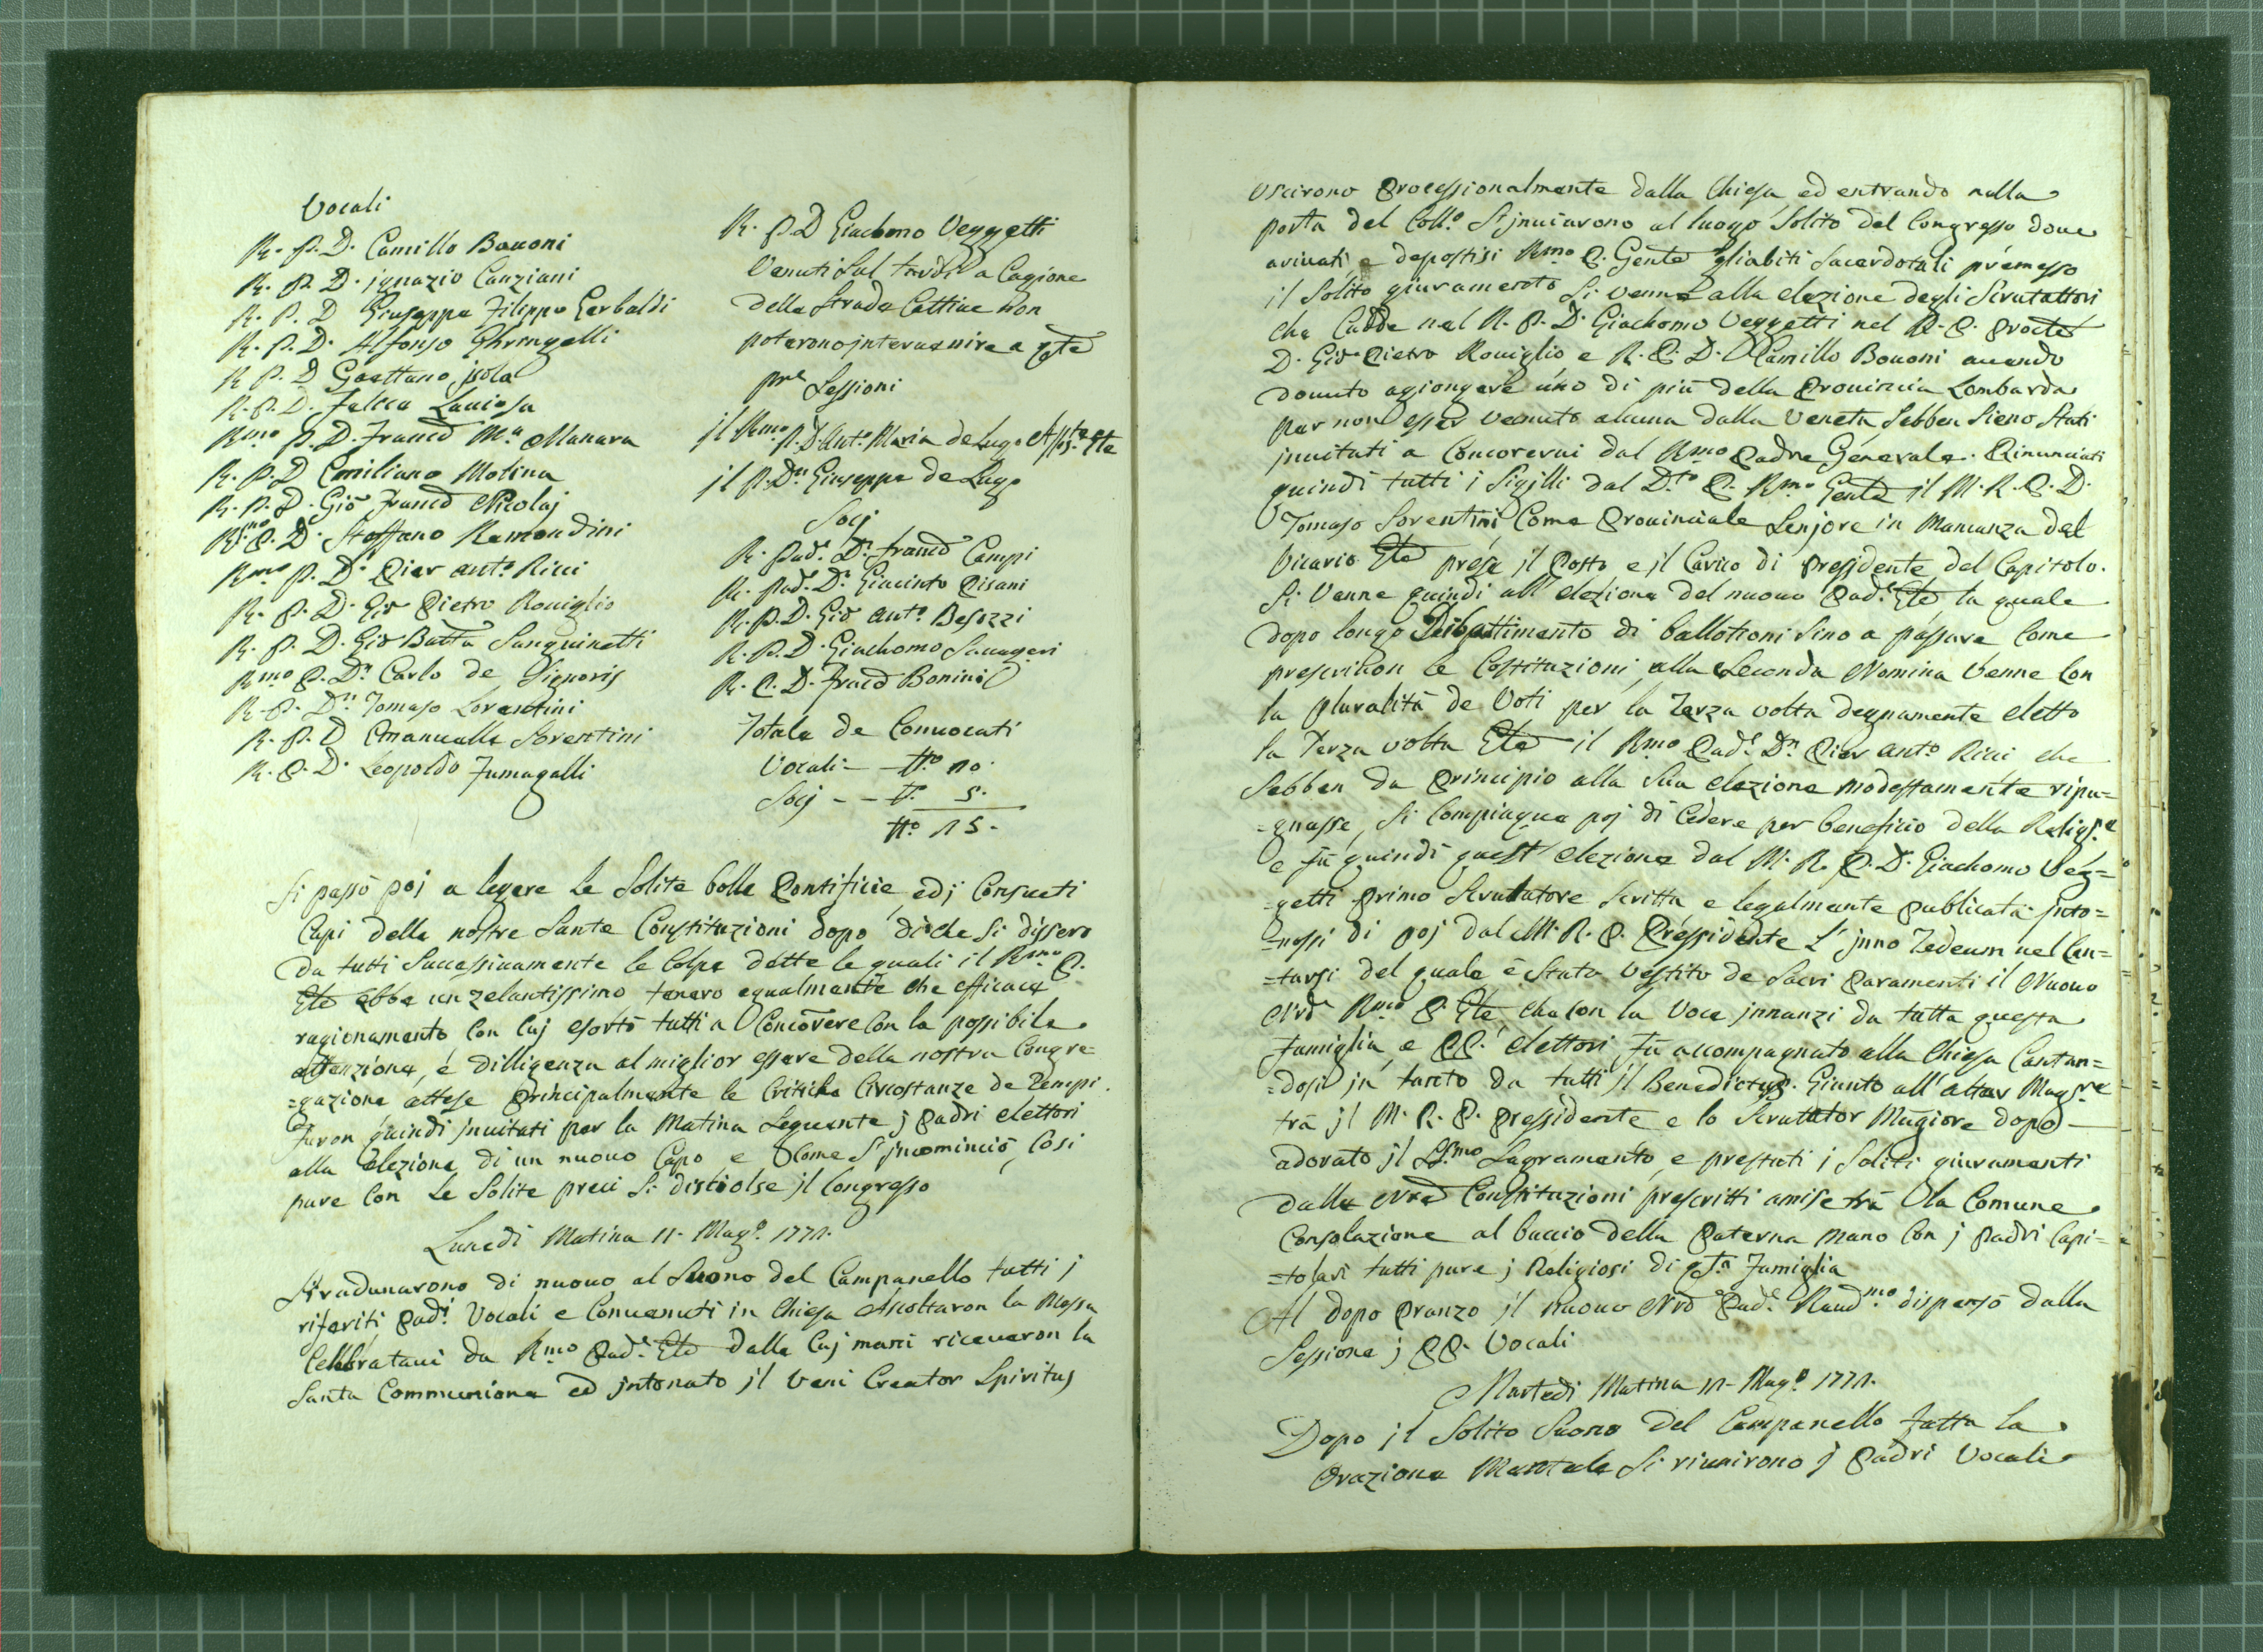 Vocali
R. P. D. Camillo Bauoni
R. P. D. jgnazio Canziani
R. P. D Giuseppe Filippo Gerbaldi
R. P. D. Alfonso Ghringelli
R. P. D Gaettano jsola
R. P. D. Felice Lauiosa
Rmo P. D. Franco Ma Manara
R. P. D Emiliano Molina
R. P. D. Gio Franco Nicolaj
Rmo P. D. Steffano Remondini
Rmo P. Dn Pier Anto Ricci
R. P. D. Gio Pietro Rouiglio
R. P. D. Gio Batta Sanguinetti
Rmo P. Dn Carlo de Signoris
R. P. Dn Tomaso Sorentini
R. P. D Emanuelle Sorentini
R. P. D. Leopoldo Fumagalli
R. P. D Giachomo Veggetti
Venuti Sul tardi a Cagione
della Strade Cattiue non
poterono jnteruenire a qte
pre Sessioni
jl Rmo P. D. Anto Maria de Lugo Assste Gle
jl P. Dn Giuseppe de Lugo
Socj
R. Pad. Dn Franco Campi
R. Pad. Dn Giacinto Pisani
R. P. D. Gio Anto Besozzi
R. P. D. Giachomo Sauageri
R. P. D. Franco Bonini
Totale de Conuocati
Vocali - No 10.
Socj - - No 5.
No 15.
Si passò poj a legere le Solite bolle Pontificie, ed j Consueti
Capi delle nostre Sante Constituzioni dopo di che Si dissero
da tutti Successiuamente le Colpe dette le quali il Rmo P.
Gle ebbe un zelantissimo tenero egualmente che efficace
ragionamento con Cuj esortò tutti a Concorere Con la possibile
attenzione, e dilligenza al miglior essere della nostra Congre=
=gazione attese Principalmente le Critiche Circostanze de Tempi.
Furon quindi jnuitati per la Matina Seguente j Padri elettori
alla elezione di un nuouo Capo e Come S'jncominciò, Cosi
pure Con le Solite preci Si disciolse jl Congresso
Lunedi Matina 11. Mago 1771.
Si radunarono di nuouo al Suono del Campanello tutti j
riferiti Padi Vocali e Conuenuti in Chiesa Ascoltaron la Messa
Cellebrataui da Rmo Pade Gle dalle Cuj mani riceueron la
Santa Communione ed jntonato jl Veni Creator Spiritus
Uscirono Processionalmente dalla Chiesa ed entrando nella
porta del Collo S'jnuiarono al luogo Solito del Congresso doue
ariuati e depostisi Rmo P. Gente gliabiti Sacerdotali premesso
il Solito giuramento Si venne alla elezione degli Scrutattori
che Cadde nel R. P. D. Giachomo Veggetti nel R. P.
D. Gio Pietro Rouiglio e R. P. D. Camillo Bouoni auendo
douuto agiongere uno di più della Prouincia Lombarda
per non esser venuto alcuna dalla Veneta Sebben Sieno Stati
jnuitati a Concorerui dal Rmo Padre Generale. Rinunciati
quindi tutti i Sigilli dal Dto P. Rmo Gente il M. R. P. D.
Tomaso Sorentini Come Prouinciale Senjore in Mancanza del
Vicario Gle prese jl Posto e jl Carico di Pressidente del Capitolo.
Si Venne quindi all'elezione del nuouo Pade Gle la quale
dopo longo Dibattimento di ballotioni Sino a passare Come
prescrihon le Costituzioni, alla Seconda Nomina Venne Con
la Pluralità de Voti per la Terza volta degnamente eletto
la Terza volta Gle il Rmo Pade Dn Pier Anto Ricci che
Sebben da Principio alla Sua elezione modestamente ripu=
=gnasse, Si Compiaque poj di Cedere per beneficio della Religne
e fù quindi quest'elezione dal M. R. P. D. Giachomo Veg=
=getti Primo Scrutatore Scritta e legalmente Publicata. jnto=
=nossi di poj dal M. R. P. Pressidente L'jnno Tedeum nel Can=
=tarsi del quale è Stato Vestito de Sacri Paramenti il Nuouo
Nro Rmo P. Gle che con la Voce jnnanzi da tutta questa
Famiglia, e PP. elettori fù accompagnato alla Chiesa Cantan=
=dosi jn tanto da tutti jl Benedictus. Giunto all'altar Magre
trà jl M. R. P. Pressidente e lo Scrutator Magiore dopo
adorato jl SSmo Sagramento, e prestati j Soliti giuramenti
dalle Nre Constituzioni prescritti amise trà la Comune
Consolazione al baccio della Paterna mano Con j Padri Capi=
=tolari tutti pure j Religiosi di qta Famiglia
Al dopo Pranzo jl nuouo Nro Pade Reudmo dispensò dalla
Sessione j PP. Vocali
Martedi Matina 12. Mago 1771.
Dopo jl Solito Suono del Campanello fatta la
Orazione Mentale Si riunirono j Padri Vocali